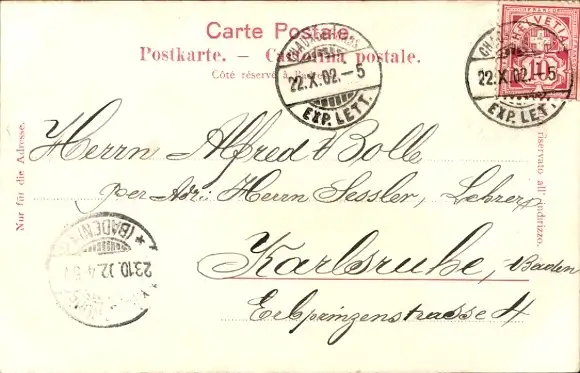 Carte Postale.
Postkarte. — Cartolina postale.
Côté réservé à l'adresse.
HELVETIA
FRANCO
10
22.X.02.–5
EXP. LETT.
22.X.02.–5
EXP. LETT.
Nur für die Adresse.
riservato all'indirizzo.
Herrn Alfred Bolle
per Adr: Herrn Sessler, Lehrer
Karlsruhe, Baden
Erbprinzenstrasse 4
(BADEN)
23.10.02.4-5